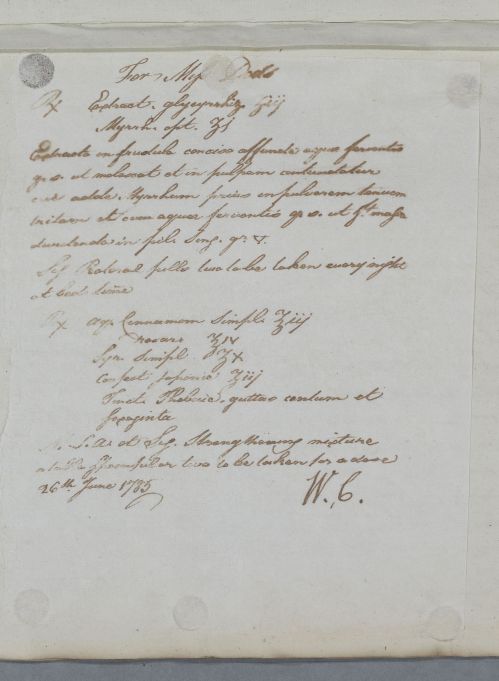 For Mrs
℞ Extract. glycyrrhiz ʒiij
Myrrh. opt. ʒj
Extracto in frustula conciso affunde aquæ ferventis
q. s. ut molescat et in pulpam contundatur
cui adde. Myrrham prius in pulverem tenuem
tritam et cum aquæ ferventis q. s. ut ft. massa
dundenda in pil. sing. gr. v.
Sig Pectoral pills two to be taken every night
at bed time
℞ aq. Cinnamom simpl. ʒiij
rosar. ʒiv
Syr. simpl ʒx
confect Japonic ʒiij
Tinct Thebaic. guttas centum et
sexaginta
M. S. A. et Sig. Strengthening mixture
a table spoonful or two to be taken for a dose
26th June 1785
W. C.